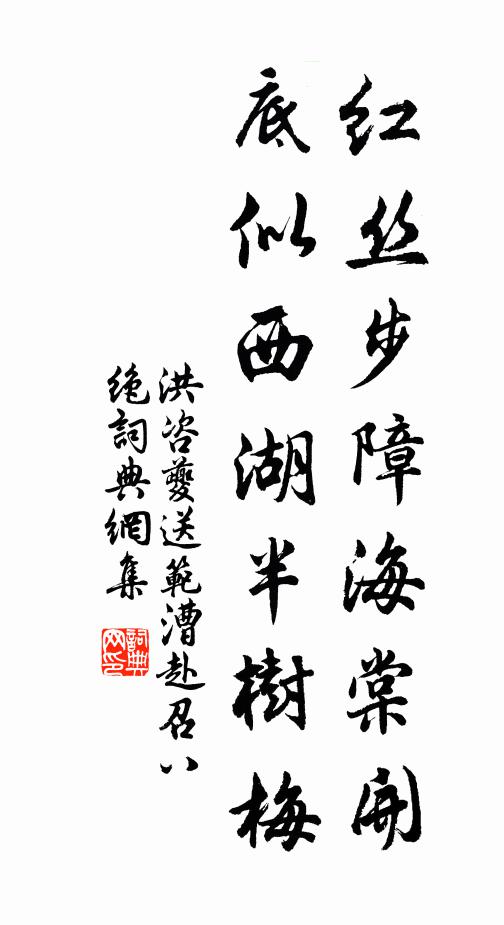 红丝步障海棠開
底似西湖半樹梅
洪咨夔送範漕赴召八
絶詞典網集
詞典网印